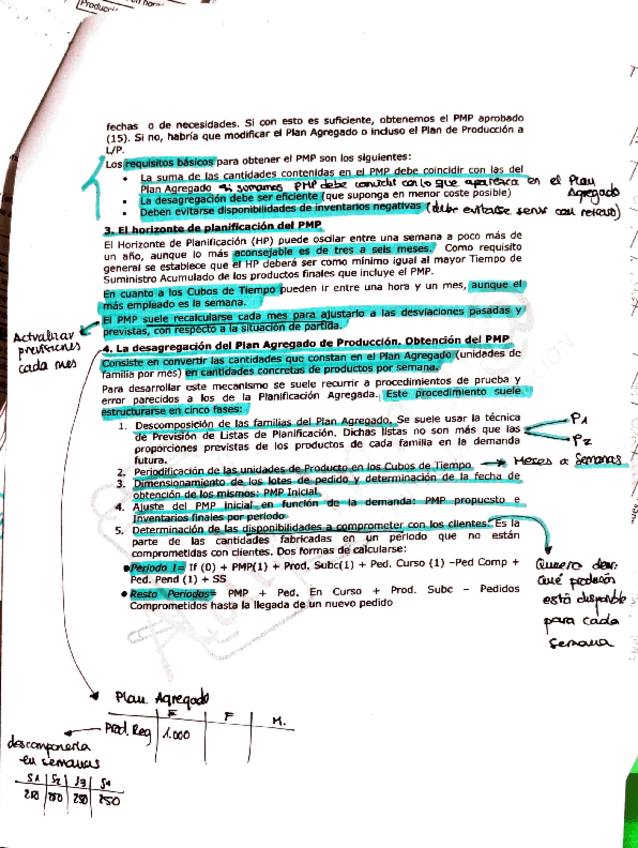 fechas o de necesidades. Si con esto es suficiente, obtenemos el PMP aprobado
(15). Si no, habría que modificar el Plan Agregado o incluso el Plan de Producción a
L/P.
Los requisitos básicos para obtener el PMP son los siguientes:
• La suma de las cantidades contenidas en el PMP debe coincidir con las del
Plan Agregado si sumamos PMP debe coincidir con lo que aparezca en el Plan Agregado
• La desagregación debe ser eficiente (que suponga en menor coste posible)
• Deben evitarse disponibilidades de inventarios negativas (debe evitarse servir con retraso)
3. El horizonte de planificación del PMP
El Horizonte de Planificación (HP) puede oscilar entre una semana a poco más de
un año, aunque lo más aconsejable es de tres a seis meses. Como requisito
general se establece que el HP deberá ser como mínimo igual al mayor Tiempo de
Suministro Acumulado de los productos finales que incluye el PMP.
En cuanto a los Cubos de Tiempo pueden ir entre una hora y un mes, aunque el
más empleado es la semana.
El PMP suele recalcularse cada mes para ajustarlo a las desviaciones pasadas y
previstas, con respecto a la situación de partida.
Actualizar
previsiones
cada mes
4. La desagregación del Plan Agregado de Producción. Obtención del PMP
Consiste en convertir las cantidades que constan en el Plan Agregado (unidades de
familia por mes) en cantidades concretas de productos por semana.
Para desarrollar este mecanismo se suele recurrir a procedimientos de prueba y
error parecidos a los de la Planificación Agregada. Este procedimiento suele
estructurarse en cinco fases:
1. Descomposición de las familias del Plan Agregado. Se suele usar la técnica
de Previsión de Listas de Planificación. Dichas listas no son más que las
proporciones previstas de los productos de cada familia en la demanda
futura.
P1
P2
2. Periodificación de las unidades de Producto en los Cubos de Tiempo → Meses a Semanas
3. Dimensionamiento de los lotes de pedido y determinación de la fecha de
obtención de los mismos: PMP Inicial.
4. Ajuste del PMP inicial en función de la demanda: PMP propuesto e
Inventarios finales por periodo
5. Determinación de las disponibilidades a comprometer con los clientes. Es la
parte de las cantidades fabricadas en un período que no están
comprometidas con clientes. Dos formas de calcularse:
• Período 1= If (0) + PMP(1) + Prod. Subc(1) + Ped. Curso (1) –Ped Comp +
Ped. Pend (1) + SS
• Resto Períodos= PMP + Ped. En Curso + Prod. Subc – Pedidos
Comprometidos hasta la llegada de un nuevo pedido
Quiero decir
está disponible
para cada
semana
Plan Agregado
E F M.
Prod. Reg 1.000
descomponerla
en semanas
S1 S2 S3 S4
250 250 250 250